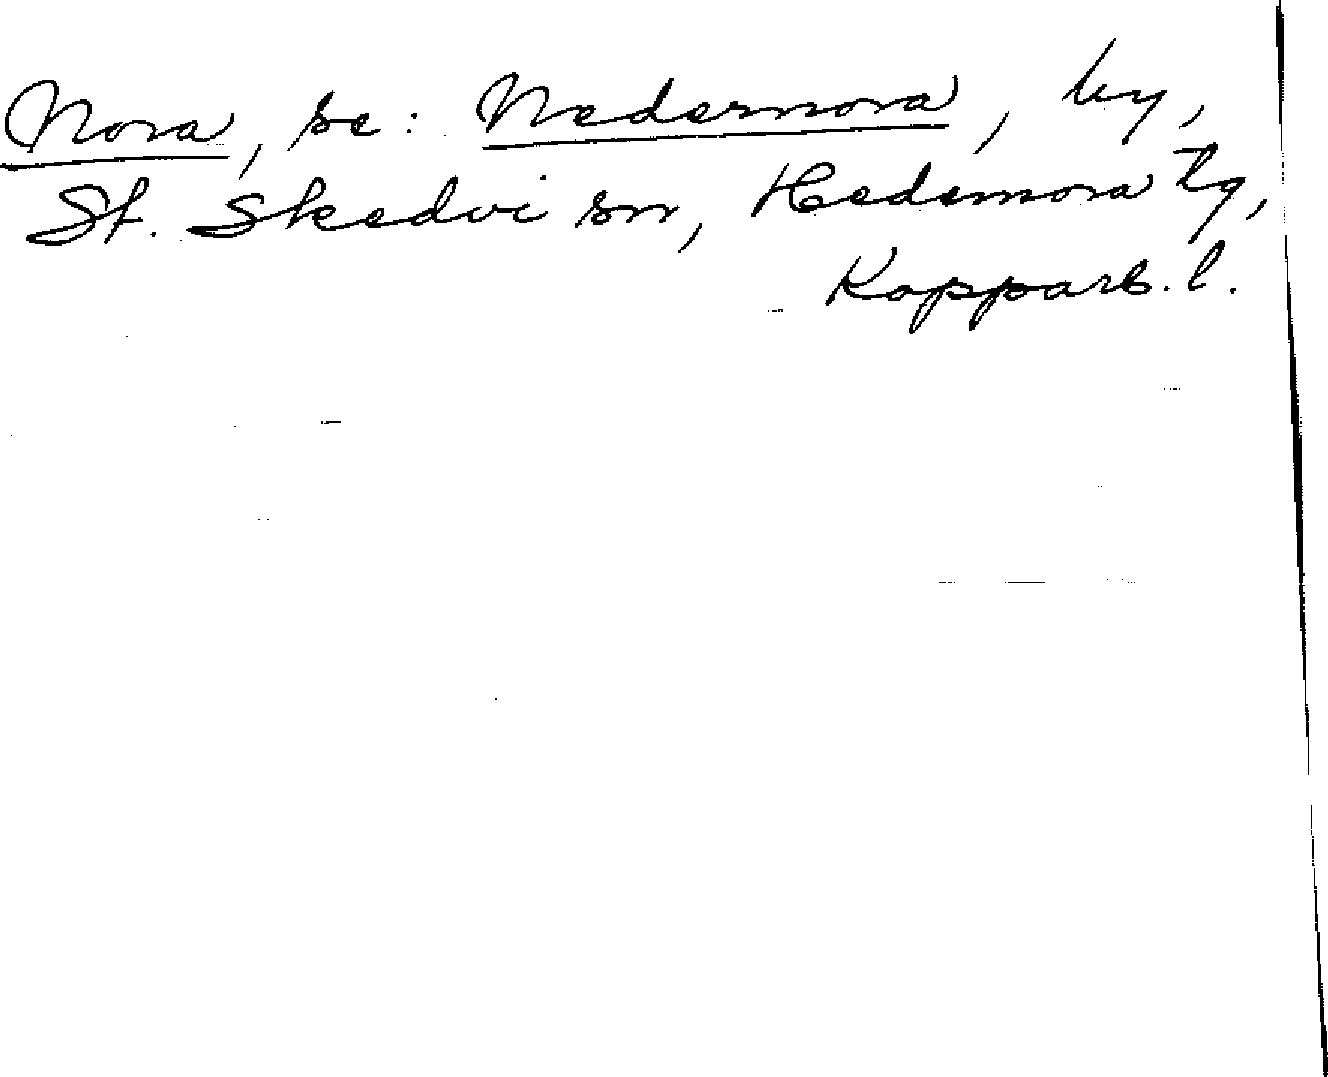 Nora, se: Nedernora, by,
St. Skedvi sn, Hedemora tg,
Kopparb. l.